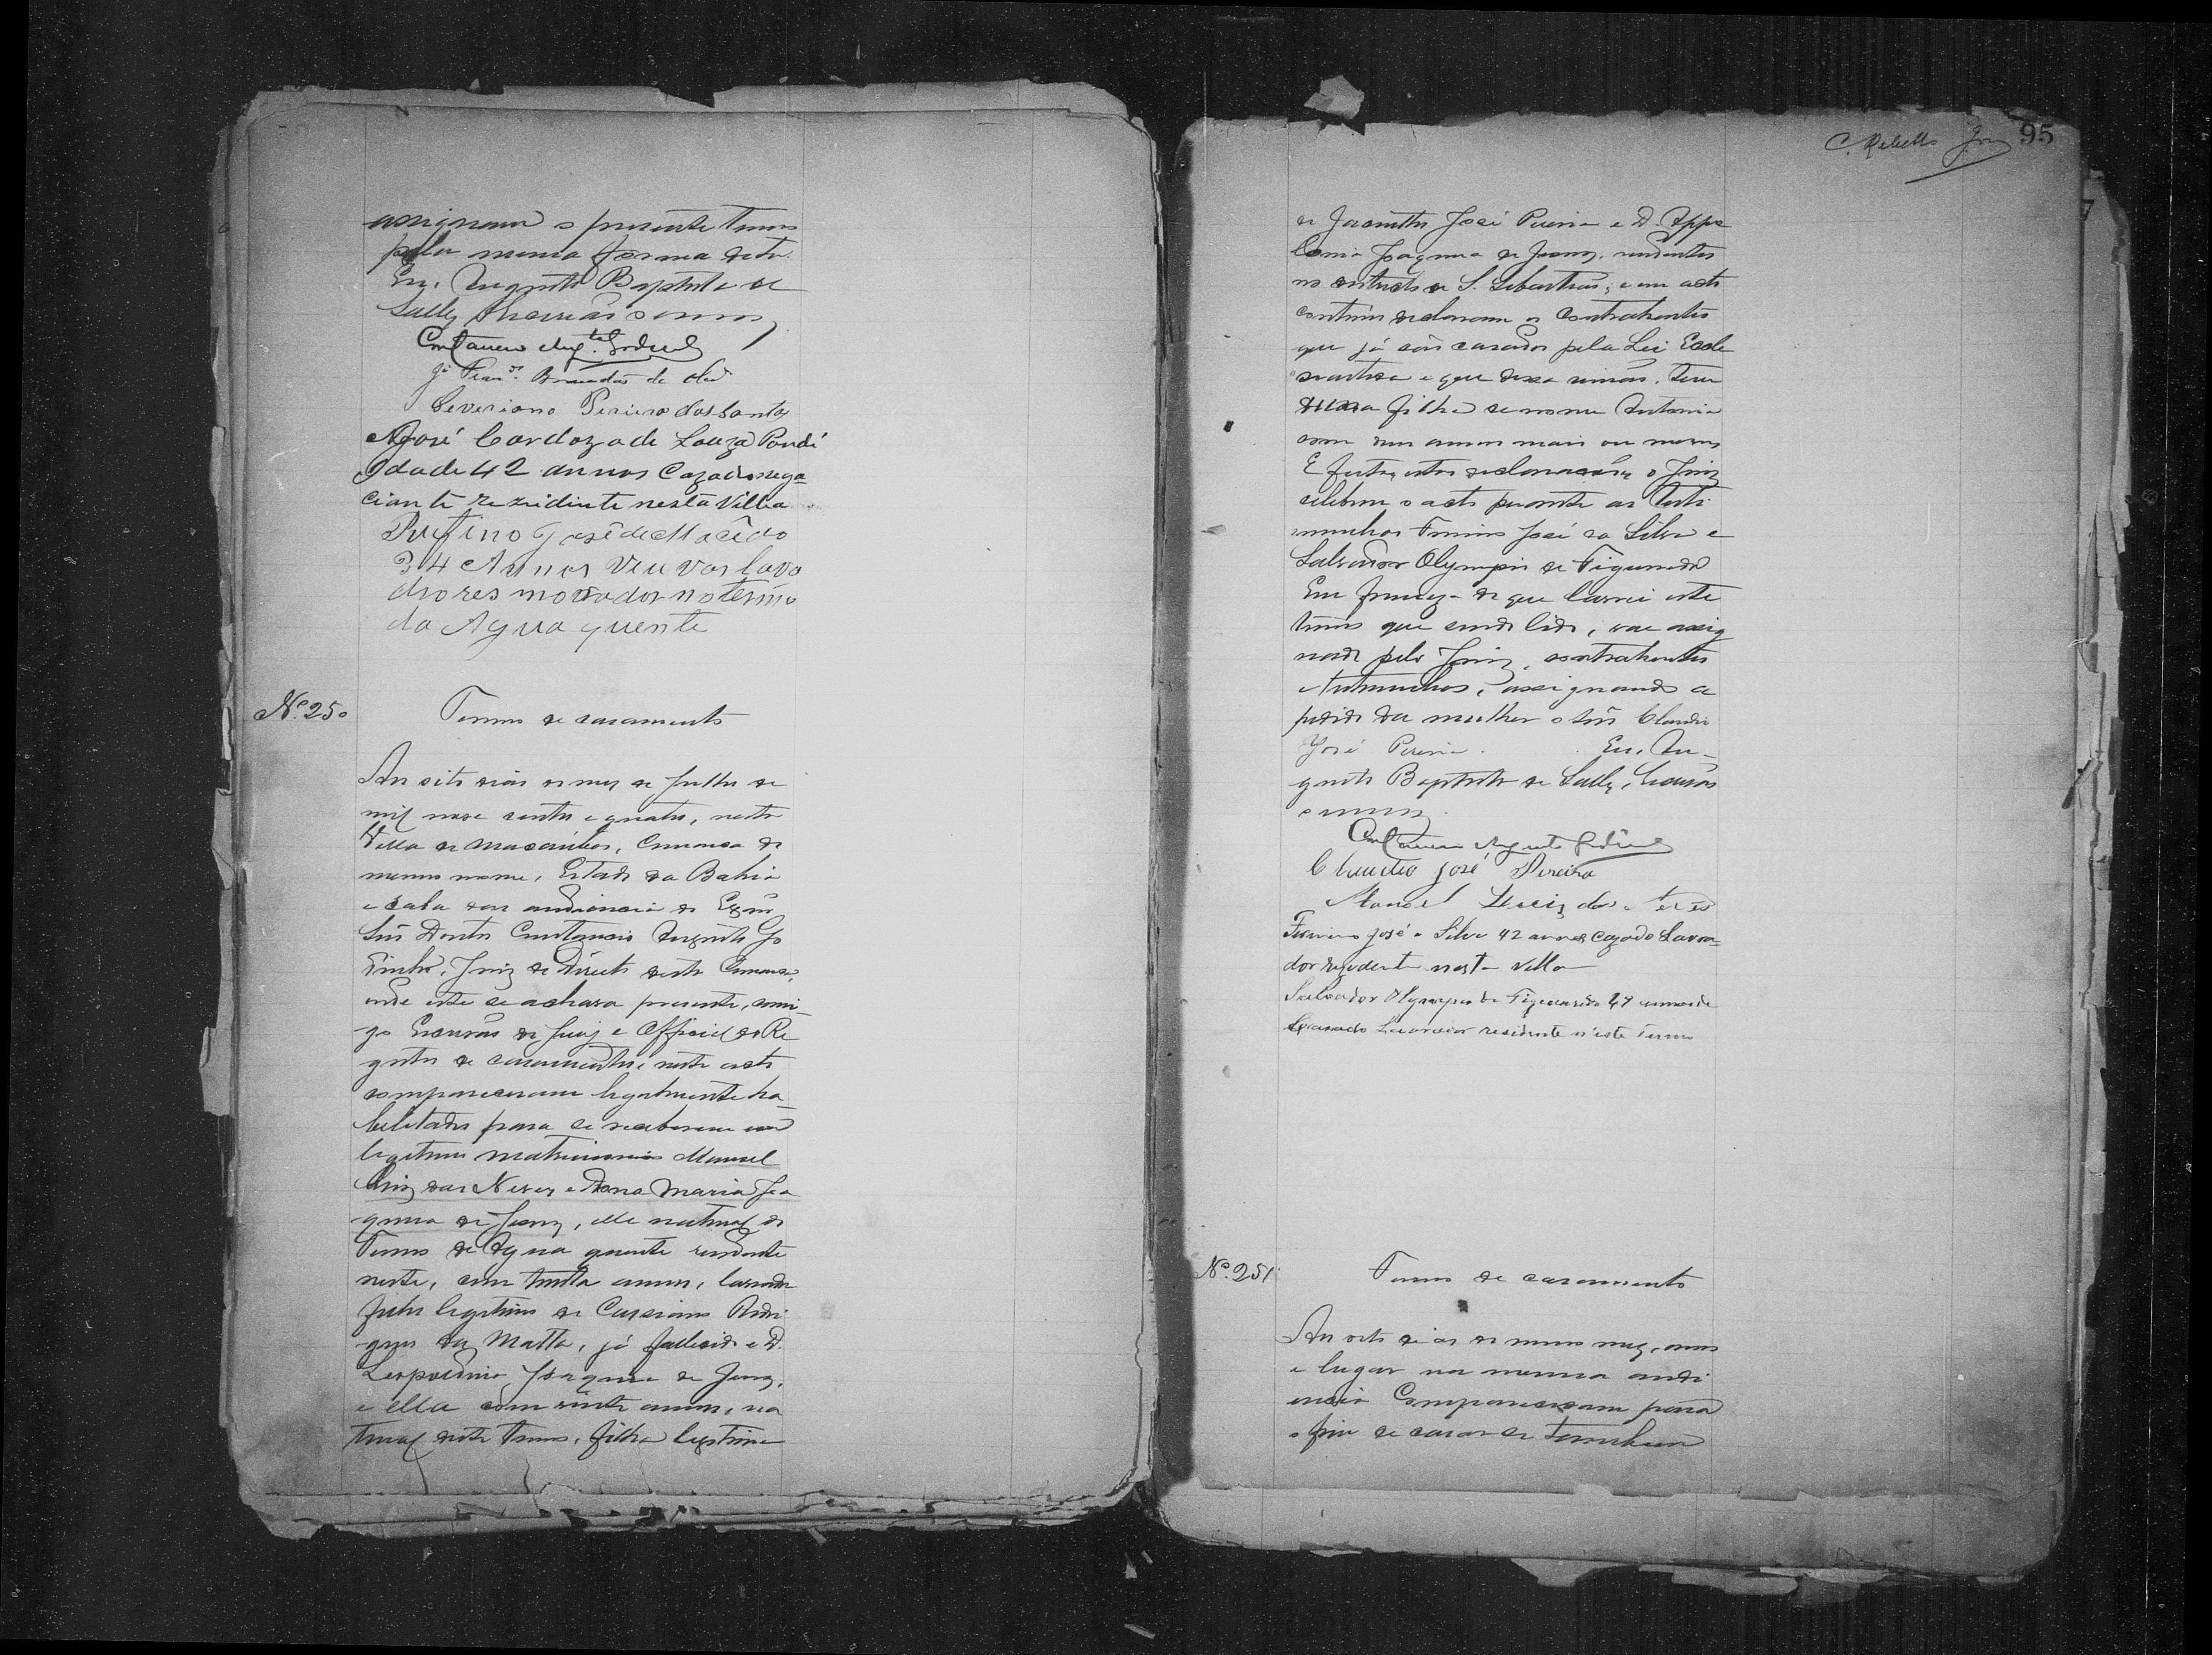 assignam o presente termo
pela mesma forma dita.
Eu, Augusto Baptista de
Lally, Escrivão o escrevy
Constancio Aug.to Godinho
Severiano Pereira dos Santos
José Cardozo de Souza Pondé
Idade 42 annos Cazado nego
ciante rezidinte nesta Villa
Rufino José de Macêdo
34 Annos Viuvos lava
drores morador no termo
da Agua quente
Nº. 250
Termo de casamento
Aos oito dias do mez de Julho de
mil nove centos e quatro, nesta
Villa de Macaúbas, Comarca do
mesmo nome, Estado da Bahia
e sala das audiencia do Exmº
Snr Doutor Constancio Augusto Go
dinho, Juiz de Direito desta Comarca,
onde este se achava presente, comi-
go Escrivão de Juiz e Official do Re
gistro de casamentos, neste acto
compareceram legalmente ha-
belitados para se receberem em
legitimo matrimonio Manoel
Luiz das Neves e Dona Maria Joa
quina de Jesus, elle natural do
Termo de Agua quente residente
neste, com trinta annos, lavrador
filho legitimo de Cassiano Rodri
gues da Matta, já fallecido e D.
Leopoldina Joaquina de Jesus,
e ella com vinte annos, na
tural deste termo, filha legitima
C. Rebello 95
de Jacintho José Pereira e D. Appo
lonia Joaquina de Jesus, residentes
no districto de S. Sebastião; e em acto
continuo declararam os contrahentes
que já são casados pela Lei Eccle
siastica e que dessa união, tem
uma filha de nome Antonia
com um anno mais ou menos
E feitas estas declarações, o Juiz
celebrou o acto perante as teste
munhas Firmino José da Silva e
Salvador Olympio de Figueredo
Em firmeza de que lavrei este
termo que sendo lido, vae assig
nado pelo Juiz, contrahentes
e testemunhas, assignando a
pedido da mulher o Snr Claudio
José Pereira. Eu, Au-
gusto Baptista de Lally, Escrivão
o escrevy.
Constancio Augusto Godinho
Claudio José Pereira
Manoel Luiz das Neves
Firmino José a Silva 42 annos Cazado Lavra-
dor rezidente nesta Villa
Salvador Olympio de Figueredo 47 annos de
Casado Lavrador residente n'este Termo
Nº. 251
Termo de casamento
Aos oito dias do mesmo mez, anno
e lugar na mesma audi
encia Compareceram para
o fim de casar-se tambem